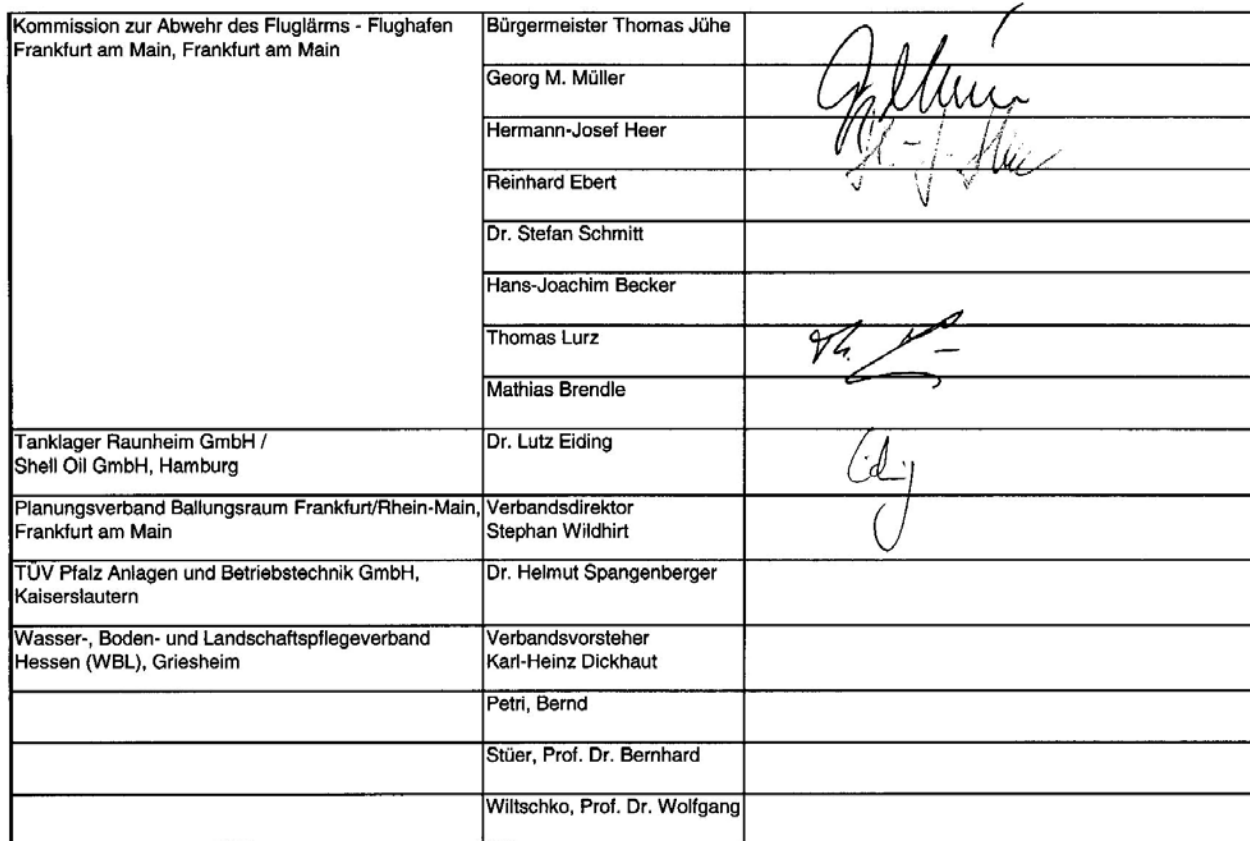 Kommission zur Abwehr des Fluglärms - Flughafen
Frankfurt am Main, Frankfurt am Main
Bürgermeister Thomas Jühe
Georg M. Müller
Hermann-Josef Heer
Reinhard Ebert
Dr. Stefan Schmitt
Hans-Joachim Becker
Thomas Lurz
Mathias Brendle
Tanklager Raunheim GmbH /
Shell Oil GmbH, Hamburg
Dr. Lutz Eiding
Planungsverband Ballungsraum Frankfurt/Rhein-Main,
Frankfurt am Main
Verbandsdirektor
Stephan Wildhirt
TÜV Pfalz Anlagen und Betriebstechnik GmbH,
Kaiserslautern
Dr. Helmut Spangenberger
Wasser-, Boden- und Landschaftspflegeverband
Hessen (WBL), Griesheim
Verbandsvorsteher
Karl-Heinz Dickhaut
Petri, Bernd
Stüer, Prof. Dr. Bernhard
Wiltschko, Prof. Dr. Wolfgang